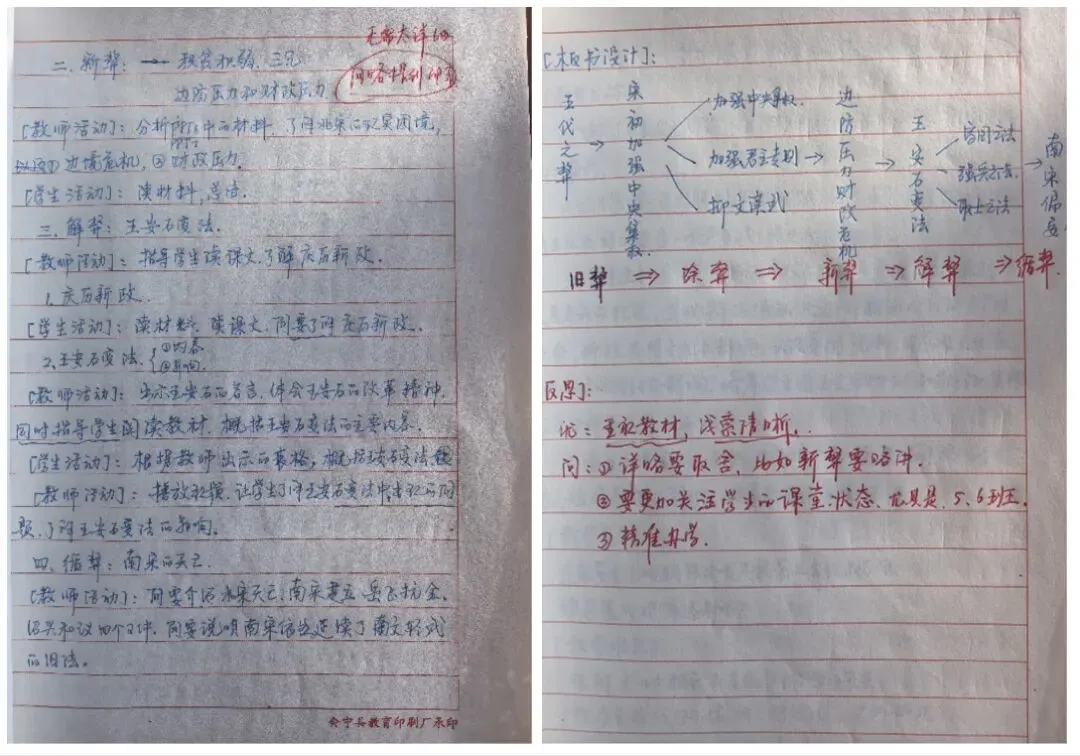 无需太详细
二、新弊：→ 积贫积弱、三冗
边防压力和财政压力
简略提到即可
[教师活动]：分析所给中的材料，了解北宋的现实困境，
①边境危机，②财政压力。
[学生活动]：读材料，总结。
三、解弊：王安石变法。
[教师活动]：指导学生读课文，了解庆历新政。
1.庆历新政。
[学生活动]：读材料，读课文，简要了解庆历新政。
2.王安石变法。①内容 ②影响
[教师活动]：出示王安石的名言，体会王安石的改革精神，
同时指导学生阅读教材，概括王安石变法的主要内容。
[学生活动]：根据教师出示的表格，概括王安石变法
[教师活动]：播放视频，让学生了解王安石变法中出现的问
题，了解王安石变法的影响。
四、循弊：南宋的灭亡。
[教师活动]：简要介绍北宋灭亡、南宋建立、岳飞抗金、
绍兴和议四个事件，简要说明南宋依然延续了重文轻武
的旧法。
会宁县教育印刷厂承印
[板书设计]：
五代之弊
→
宋初加强中央集权
加强中央集权
加强君主专制
抑文崇武
→
边防压力财政危机
→
王安石变法
富国之法
强兵之法
取士之法
→
南宋偏安
旧弊 ⇒ 除弊 ⇒ 新弊 ⇒ 解弊 ⇒ 循弊
反思]：
优：重视教材，线索清晰。
问：①详略要取舍，比如新弊要略讲。
②要更加关注学生的课堂状态，尤其是5、6班。
③精准